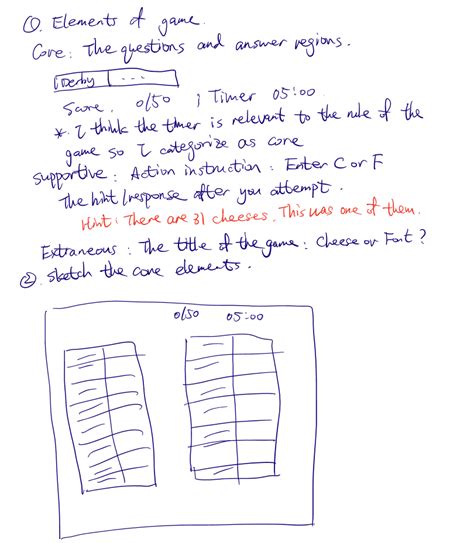 ①. Elements of game.
Core: The questions and answer regions.
Derby | ...
Score. 0/50 ; Timer 05:00
* I think the timer is relevant to the rule of the
game so I categorize as core
Supportive: Action instruction: Enter C or F
The hint/response after you attempt.
Hint: There are 31 cheeses. This was one of them.
Extraneous: The title of the game: Cheese or Font?
②. Sketch the core elements.
0/50 05:00